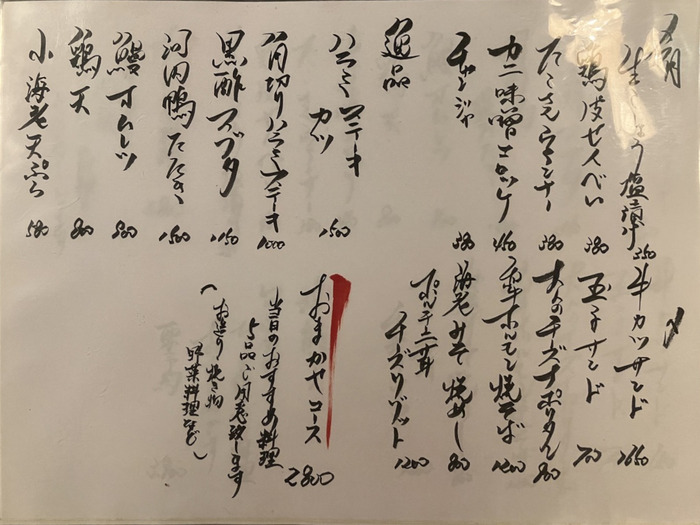 生こしょう塩漬け 350
鶏皮せんべい 380
たこさんウインナー 380
カニ味噌コロッケ 450
チャンジャ 380
逸品
ハラミステーキ
カツ 1500
八月切りハラミステーキ 1000
黒酢スブタ 1150
河内鴨たたき 1500
鰻オムレツ 800
鶏天 800
小海老天ぷら 580
〆
牛カツサンド 1650
玉子サンド 700
大人のチーズナポリタン 800
牛ホルモン焼そば 1200
海老みそ焼めし 800
ポルチーニ茸
チーズリゾット 1200
おまかせコース 2800
当日のおすすめ料理
5品ご用意致します
(お造り 焼き物
野菜料理など)